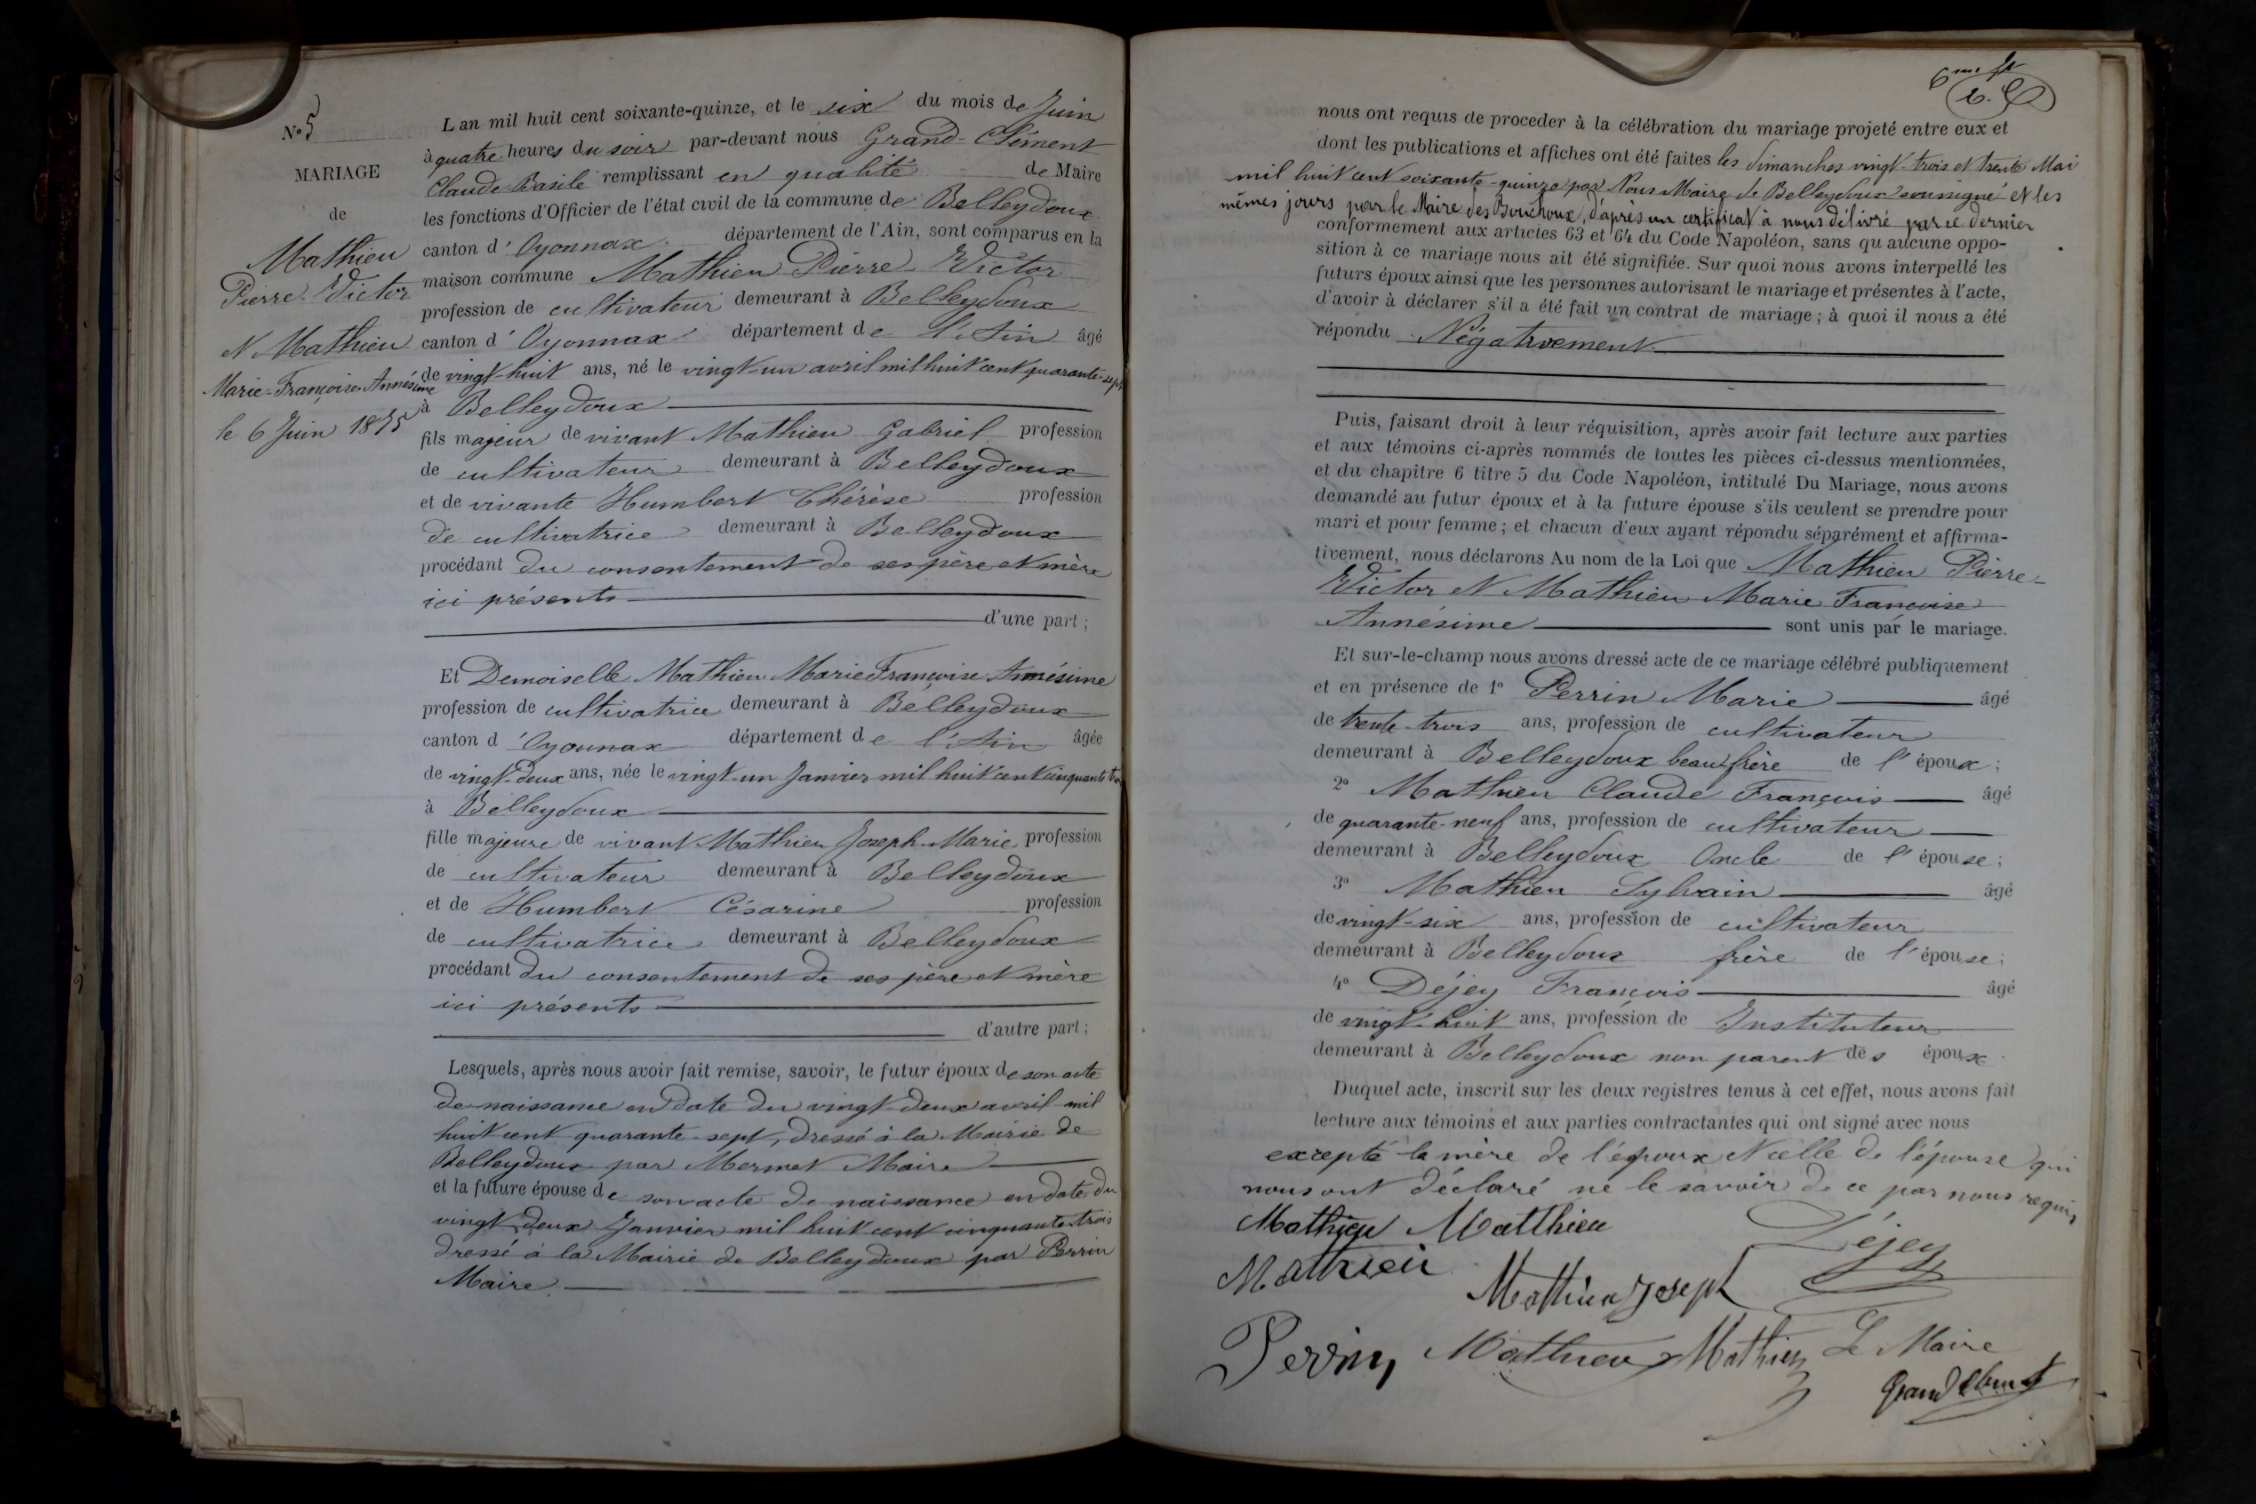 N° 5
MARIAGE
de
Mathieu
Pierre-Victor
et Mathieu
Marie-Françoise-Annésime
le 6 Juin 1875
L an mil huit cent soixante-quinze, et le six du mois de Juin
à quatre heures du soir par-devant nous Grand-Clément
Claude Basile remplissant en qualité de Maire
les fonctions d'Officier de l'état civil de la commune de Belleydoux
canton d' Oyonnax département de l'Ain, sont comparus en la
maison commune Mathieu Pierre-Victor
profession de cultivateur demeurant à Belleydoux
canton d' Oyonnax département de l'Ain âgé
de vingt-huit ans, né le vingt-un avril mil huit cent quarante-sept
à Belleydoux
fils majeur de vivant Mathieu Gabriel profession
de cultivateur demeurant à Belleydoux
et de vivante Humbert Thérèse profession
de cultivatrice demeurant à Belleydoux
procédant du consentement de ses père et mère
ici présents
d'une part ;
Et Demoiselle Mathieu Marie Françoise Annésime
profession de cultivatrice demeurant à Belleydoux
canton d' Oyonnax département de l'Ain âgée
de vingt-deux ans, née le vingt-un Janvier mil huit cent cinquante
à Belleydoux
fille majeure de vivant Mathieu Joseph-Marie profession
de cultivateur demeurant à Belleydoux
et de Humbert Césarine profession
de cultivatrice demeurant à Belleydoux
procédant du consentement de ses père et mère
ici présents
d'autre part ;
Lesquels, après nous avoir fait remise, savoir, le futur époux de son acte
de naissance en date du vingt-deux avril mil
huit cent quarante-sept, dressé à la Mairie de
Belleydoux par Mermet Maire
et la future épouse de son acte de naissance en date du
vingt-deux Janvier mil huit cent cinquante-trois
dressé à la Mairie de Belleydoux par Perrin
Maire.
nous ont requis de proceder à la célébration du mariage projeté entre eux et
dont les publications et affiches ont été faites les dimanches vingt-trois et trente Mai
mil huit cent soixante-quinze par Nous Maire de Belleydoux soussigné et les
mêmes jours par le Maire des Bouchoux, d'après un certificat à nous délivré par ce dernier
conformement aux articles 63 et 64 du Code Napoléon, sans qu aucune oppo-
sition à ce mariage nous ait été signifiée. Sur quoi nous avons interpellé les
futurs époux ainsi que les personnes autorisant le mariage et présentes à l'acte,
d'avoir à déclarer s'il a été fait un contrat de mariage ; à quoi il nous a été
répondu Négativement
Puis, faisant droit à leur réquisition, après avoir fait lecture aux parties
et aux témoins ci-après nommés de toutes les pièces ci-dessus mentionnées,
et du chapitre 6 titre 5 du Code Napoléon, intitulé Du Mariage, nous avons
demandé au futur époux et à la future épouse s'ils veulent se prendre pour
mari et pour femme ; et chacun d'eux ayant répondu séparément et affirma-
tivement, nous déclarons Au nom de la Loi que Mathieu Pierre-
Victor et Mathieu Marie Françoise
Annésime sont unis par le mariage.
Et sur-le-champ nous avons dressé acte de ce mariage célébré publiquement
et en présence de 1° Perrin Marie âgé
de trente-trois ans, profession de cultivateur
demeurant à Belleydoux beau-frère de l' époux ;
2° Mathieu Claude François âgé
de quarante-neuf ans, profession de cultivateur
demeurant à Belleydoux Oncle de l' épouse ;
3° Mathieu Sylvain âgé
de vingt-six ans, profession de cultivateur
demeurant à Belleydoux frère de l' épouse ;
4° Déjey François âgé
de vingt-huit ans, profession de Instituteur
demeurant à Belleydoux non parent des époux.
Duquel acte, inscrit sur les deux registres tenus à cet effet, nous avons fait
lecture aux témoins et aux parties contractantes qui ont signé avec nous
excepté la mère de l'époux et celle de l'épouse qui
nous ont déclaré ne le savoir de ce par nous requis
Mathieu Matthieu Déjey
Mathieu
Mathieu Joseph
Perrin Mathieu Mathieu Le Maire
Grand Clément